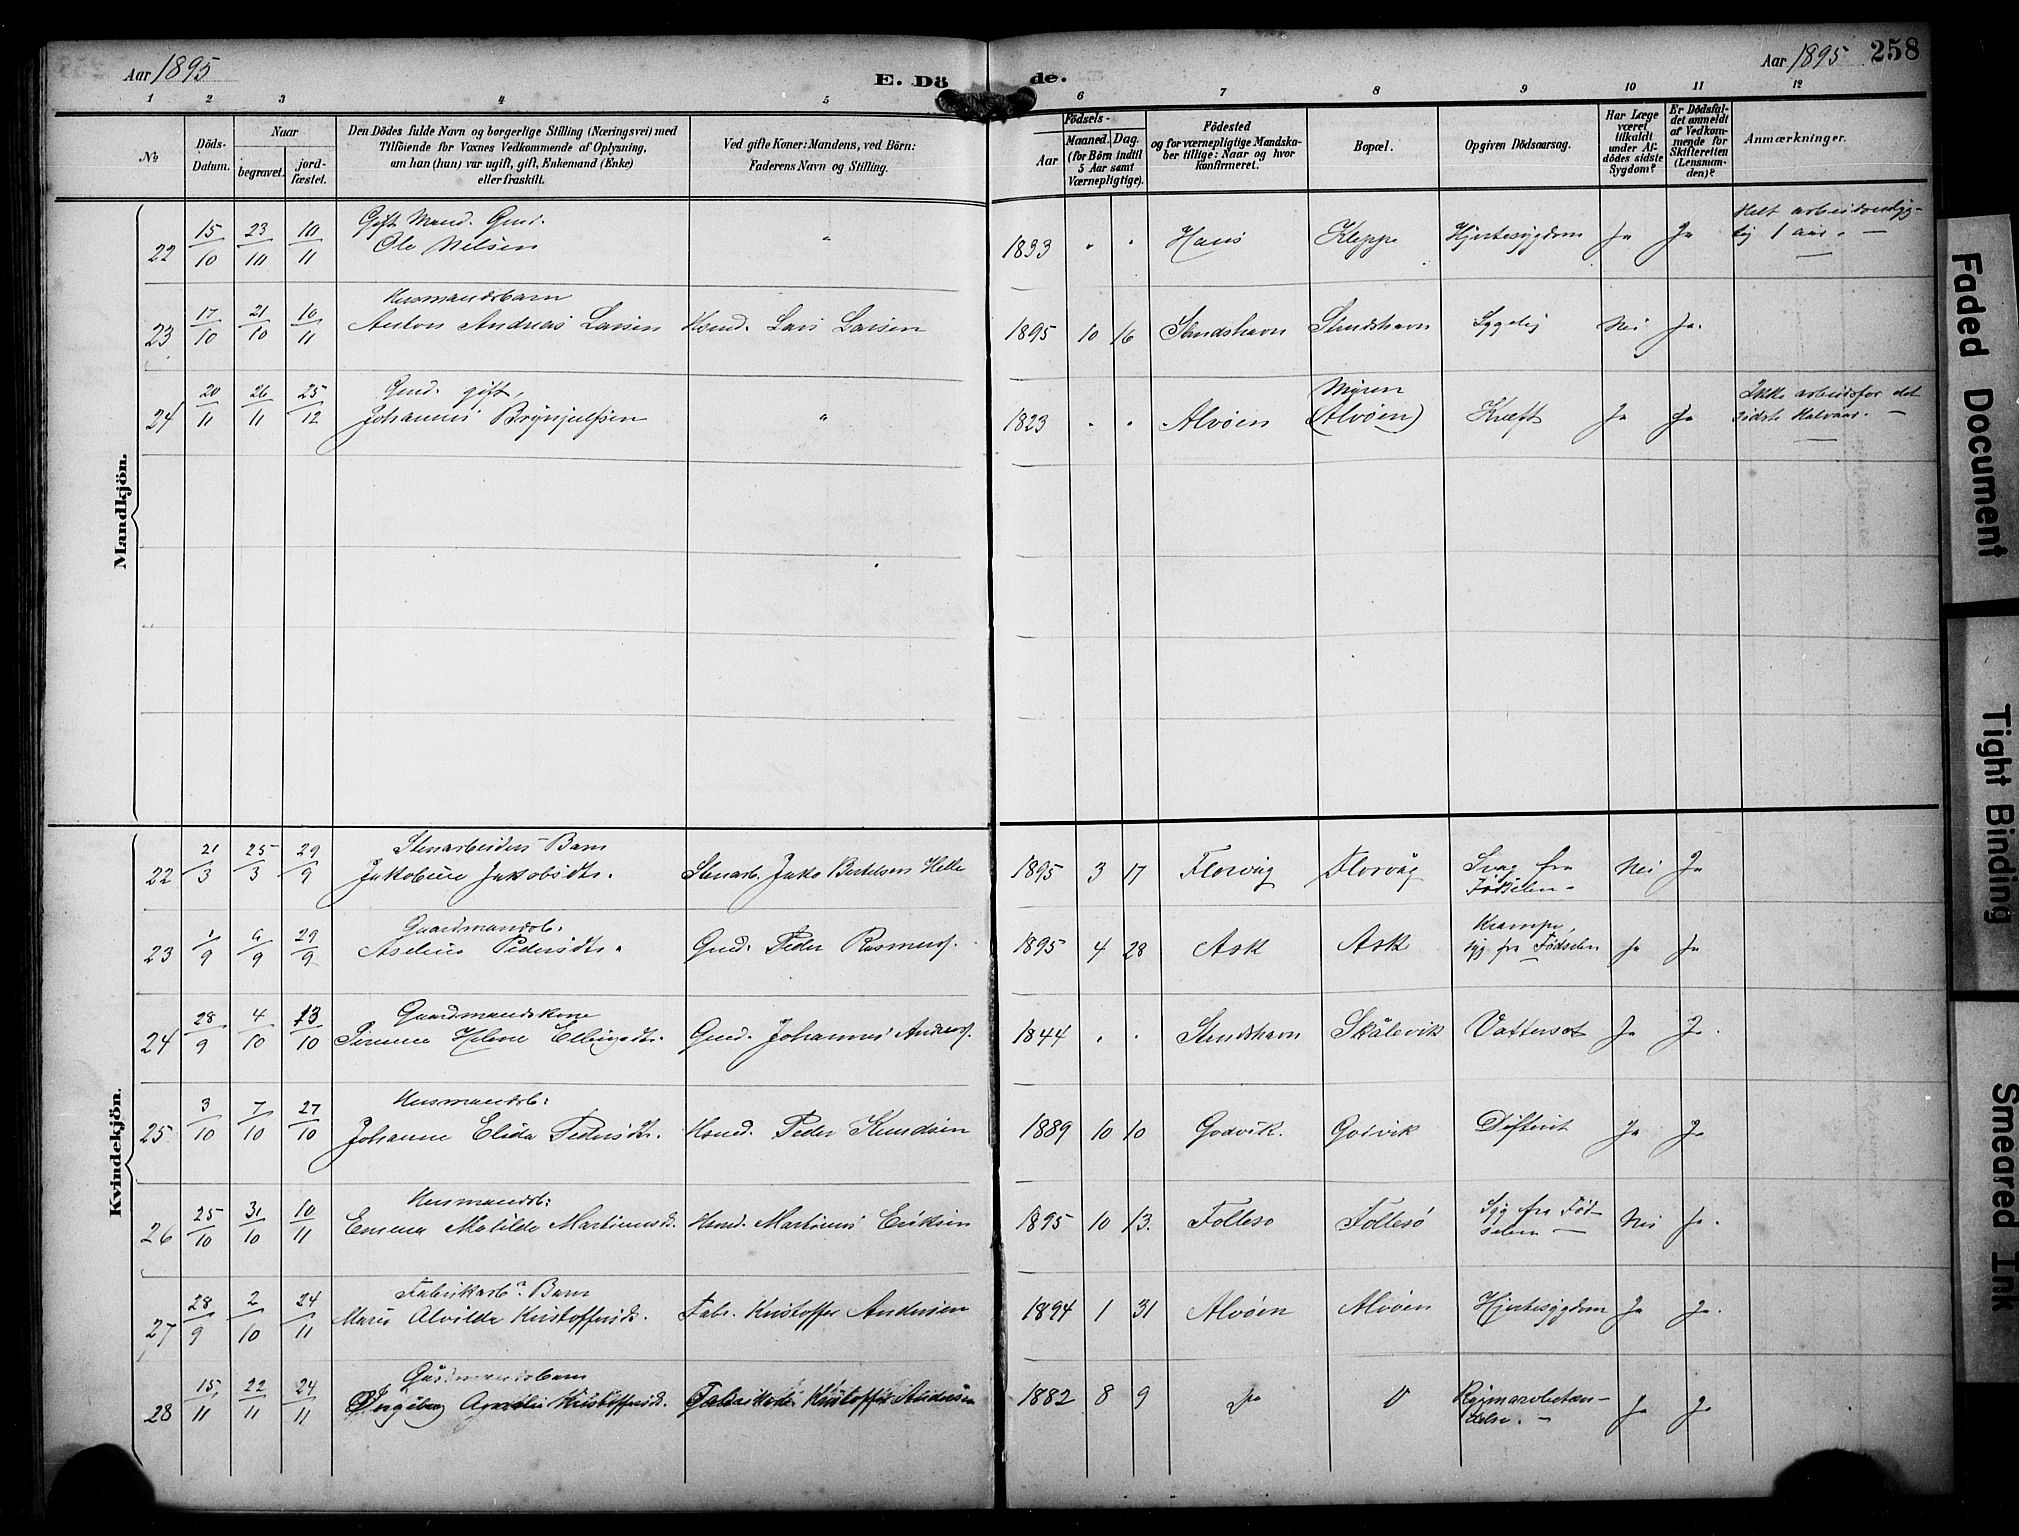 Aar 1895
E. Döde.
Aar 1895
258
1 2 3 4 5 6 7 8 9 10 11 12
No
Döds-Datum.
Naar
begravet.
jord-fæstet.
Den Dödes fulde Navn og borgerlige Stilling (Næringsvei) med
Tilföiende for Voxnes Vedkommende af Oplysning,
om han (hun) var ugift, gift, Enkemand (Enke)
eller fraskilt.
Ved gifte Koner: Mandens, ved Börn:
Faderens Navn og Stilling.
Födsels-
Aar
Maaned. Dag.
(for Börn indtil
5 Aar samt
Værnepligtige).
Födested
og for værnepligtige Mandska-
ber tillige: Naar og hvor
konfirmeret.
Bopæl.
Opgiven Dödsaarsag.
Har Læge
været
tilkaldt
under Af-
dödes sidste
Sygdom?
Er Dödsfal-
det anmeldt
af Vedkom-
mende for
Skifteretten
(Lensman-
den)?
Anmærkninger.
Mandkjön.
22 15/10 23/10 10/11 Gift Mand. Gmd. Ole Nilsen " 1833 " " Haus Kleppe Hjertesygdom Ja Ja Helt arbeidsudyg-tig 1 aar. —
23 17/10 21/10 10/11 Husmandsbarn Anton Andreas Larsen Hsmd. Lars Larsen 1895 10 16 Strudshavn Strudshavn Sygelig Nei Ja.
24 20/11 26/11 25/12 Gmd. gift, Johannes Brynjulfsen " 1823 " " Alvøen Myren (Alvøen) Kræft Ja Ja Ikke arbeidsfør det sidste Halvaar. —
Kvindekjön.
22 21/3 25/3 29/9 Stenarbeiders Barn Jakobine Jakobsdtr. Stenarb. Jako Bertelsen Helle 1895 3 17 Florvåg Florvåg Svag fra Fødselen - Nei Ja
23 1/9 6/9 29/9 Gaardmandsb. Aseline Pedersdtr. Gmd. Peder Rasmuss. 1895 4 28 Ask Ask Krampe, syg fra Fødselen Ja Ja
24 28/9 4/10 13/10 Gaardmandskone Helene Gmd. Johannes Anderss. 1844 " " Strudshavn Skålevik Vattersot Ja Ja.
25 3/10 7/10 27/10 Husmandsb: Johanne Elida Pedersdtr. Hsmd. Peder Knudsen 1889 10 10 Godvik. Godvik Difterit Ja Ja
26 25/10 31/10 10/11 Husmandsb: Emma Matilde Martinusd. Hsmd. Martinus Eriksen 1895 10 13. Follesø Follesø Syg fra Fød-selen — Nei Ja.
27 28/9 2/10 24/11 Fabrikarb. Barn Marie Alvilde Kristoffersd. Fabr. Kristoffer Andersen 1894 1 31 Alvøen Alvøen Hjertesygdom Ja Ja.
28 15/11 22/11 24/11 Gårdmandsbarn Ingeborg Kristoffersd. Kristoffer Andersen 1882 8 9 Rygmarvbetæn-delse. - Ja Ja
Faded Document
Tight Binding
Smeared Ink